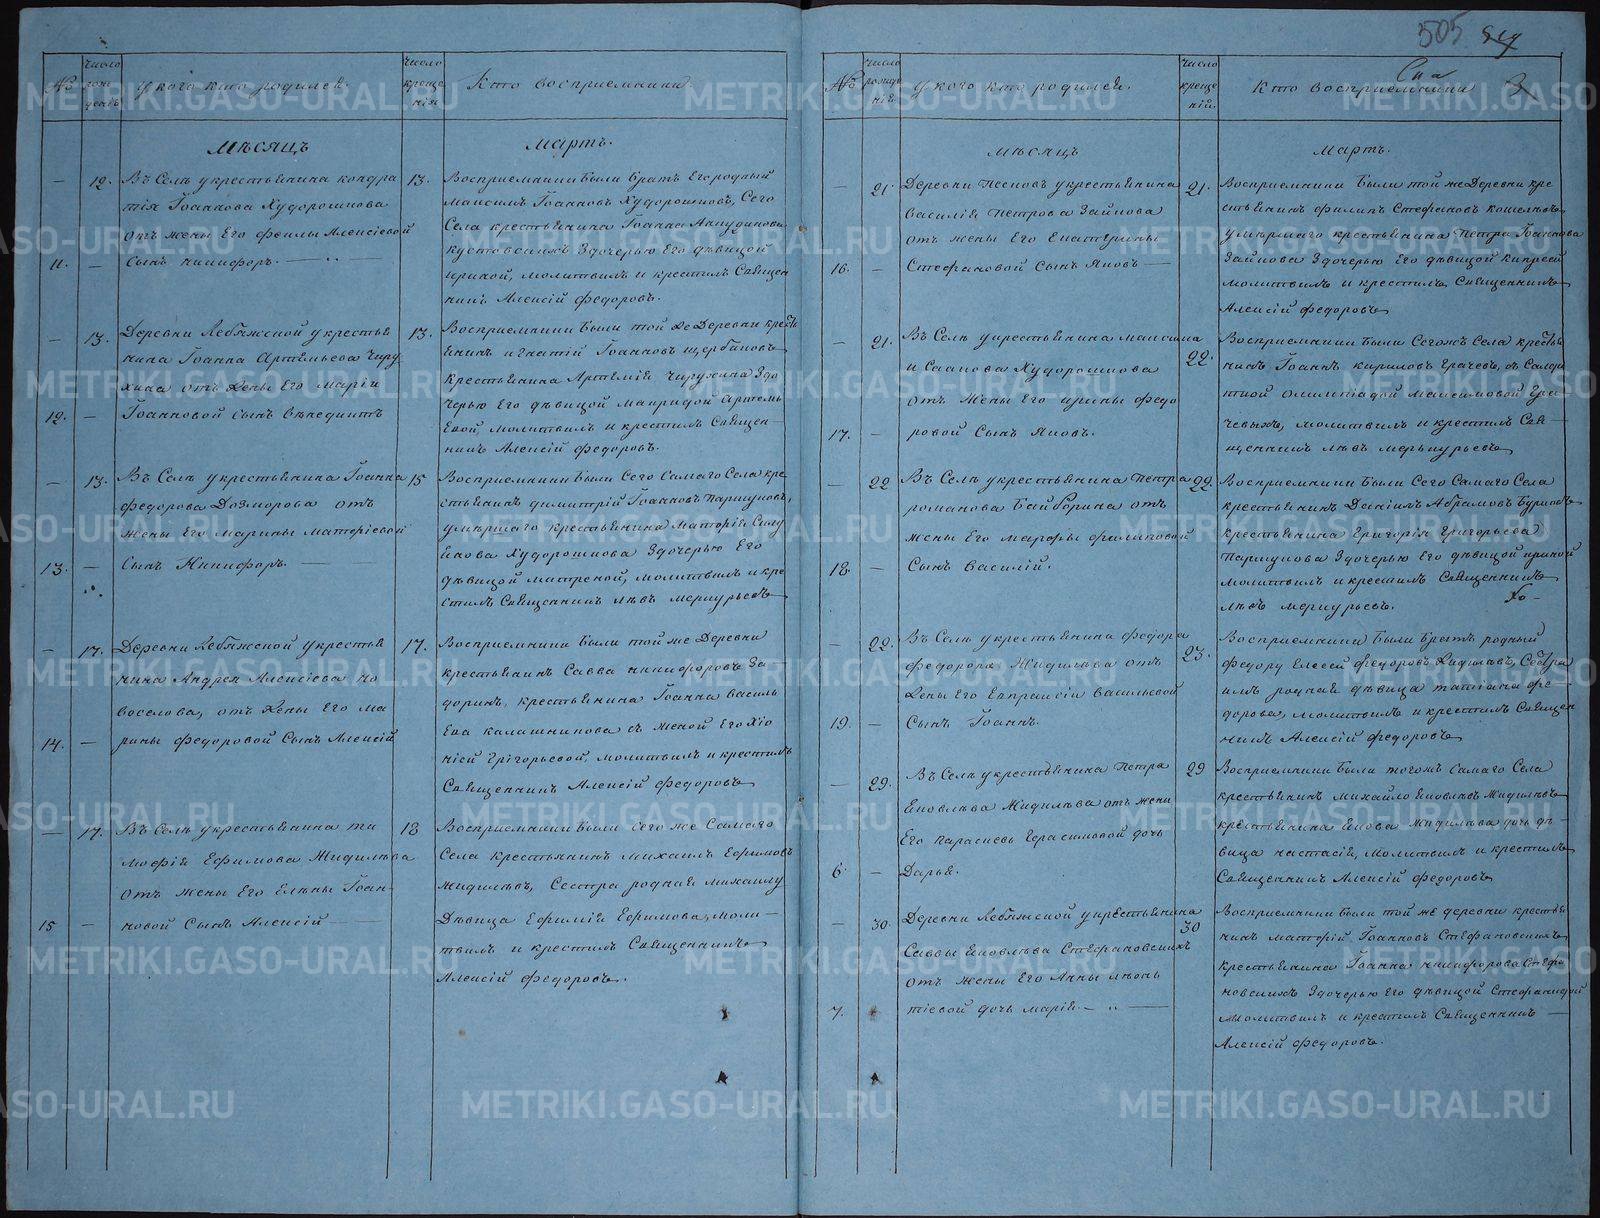 505
№ число рождень у кого кто родился. число крещенія Кто восприемники.
Мѣсяцъ Мартъ.
— 12. Въ Селѣ у крестьянина Кондра 13.
тія Іоаннова Худорошкова
отъ жены Его Феклы Алексіевой
11. — Сынъ Никифоръ.
Восприемники были братъ Его родный
Максимъ Іоанновъ Худорошковъ, Сего
Села крестьянина Іоанна
здочерью Его дѣвицой
Ириной, молитвилъ и крестилъ Священ
никъ Алексій Федоровъ.
— 13. Деревни Лебяжской у крестья 13.
нина Іоанна Артемьева Чиру
хина отъ жены Его Маріи
12. — Іоанновой сынъ Венедиктъ
Восприемники были той же Деревни крестья
нинъ Игнатій Іоанновъ Щербаковъ
крестьянина Артемія Чирухина здо
черью Его дѣвицой Мавридой Артемь
евой, молитвилъ и крестилъ Священ-
никъ Алексій Федоровъ.
— 13. Въ Селѣ у крестьянина Іоанна 15
Федорова Дозморова отъ
жены Его Марины Матфіевой
13. — Сынъ Никифоръ.
Восприемники были Сего Самаго Села кре
стьянинъ Димитрій Іоанновъ Паршуковъ,
умершаго крестьянина Матфія
Худорошкова здочерью Его
дѣвицой Матреной, молитвилъ и кре
стилъ Священникъ Левъ Меркурьевъ
— 17. Деревни Лебяжской у крестья 17.
нина Андрея Алексіева Но
воселова, отъ жены Его Ма
14. — рины Федоровой Сынъ Алексій
Восприемники были той же Деревни
крестьянинъ Савва Никифоровъ За
доринъ, крестьянина Іоанна Василь
ева Калашникова съ женой Его Хіо
ніей Григорьевой, молитвилъ и крестилъ
Священникъ Алексій Федоровъ
— 17. Въ Селѣ у крестьянина Ти 18
мофія Ефимова Жиделева
отъ жены Его Елены Іоан-
15 — новой Сынъ Алексій
Восприемники были Сего же Самаго
Села крестьянинъ Михаилъ Ефимовъ
Жиделевъ, Сестра родная Михаилу
Дѣвица Ефимія Ефимова, моли-
твилъ и крестилъ Священникъ
Алексій Федоровъ.
№ число рожденій у кого кто родился. число крещеній. Кто восприемники
Мѣсяцъ Мартъ.
— 21. Деревни Песковъ у крестьянина 21.
Василія Петрова Зайкова
отъ жены Его Екатерины
16. — Стефановой Сынъ Яковъ —
Восприемники были той же Деревни кре
стьянинъ Филипъ Стефановъ Кошелевъ,
умершаго крестьянина Петра Іоаннова
Зайкова здочерью Его дѣвицой
молитвилъ и крестилъ Священникъ
Алексій Федоровъ
— 21. Въ Селѣ у крестьянина Максима 22.
Исаакова Худорошкова
отъ жены Его Ирины Федо
17. — ровой Сынъ Яковъ.
Восприемники были Сегожъ Села крестья
нинъ Іоаннъ Кириловъ Грачевъ,
Олимпіадой Максимовой Гра
чевыхъ, молитвилъ и крестилъ Свя-
щенникъ Левъ Меркурьевъ
— 22 Въ Селѣ у крестьянина Петра 22.
Романова Байборина отъ
жены Его Марфы Филиповой
18. — Сынъ Василій.
Восприемники были Сего Самаго Села
крестьянинъ Даніилъ Абрамовъ
крестьянина Григорія Григорьева
Паршукова здочерью Его дѣвицой Ириной
молитвилъ и крестилъ Священникъ
Левъ Меркурьевъ.
— 22. Въ Селѣ у крестьянина Федора 23.
Федорова Жиделева отъ
жены Его Евпраксіи Васильевой
19. — Сынъ Іоаннъ.
Восприемники были братъ родный
Федору Елесей Федоровъ Жиделевъ, Сестра
имъ родная дѣвица Татіана Фе-
дорова, молитвилъ и крестилъ Священ
никъ Алексій Федоровъ
— 29. Въ Селѣ у крестьянина Петра 29
Яковлева Жиделева отъ жены
Его Парасковьи Герасимовой дочь
6. — Дарья.
Восприемники были тогожъ Самаго Села
крестьянинъ Михайло Яковлевъ Жиделевъ
крестьянина Якова Жиделева дочь дѣ-
вица Настасія, молитвилъ и крестилъ
Священникъ Алексій Федоровъ
— 30. Деревни Лебяжской у крестьянина 30
Саввы Яковлева Стефановскихъ
отъ жены Его Анны Леон
7. тіевой дочь Марія. —
Восприемники были той же деревни крестья
нинъ Матфій Іоанновъ Стефановскихъ
крестьянина Іоанна Никифорова Стефа
новскихъ здочерью Его дѣвицой Стефанидой
Молитвилъ и крестилъ Священникъ —
Алексій Федоровъ.
METRIKI.GASO-URAL.RU